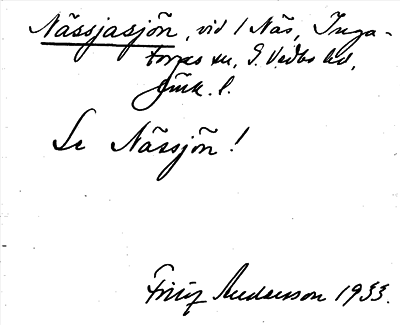 Nässjasjön, vid 1 Näs, Inga-
torps sn, S. Vedbo hd,
Jönk. l.
Se Nässjön!
Fritz Andersson 1933.